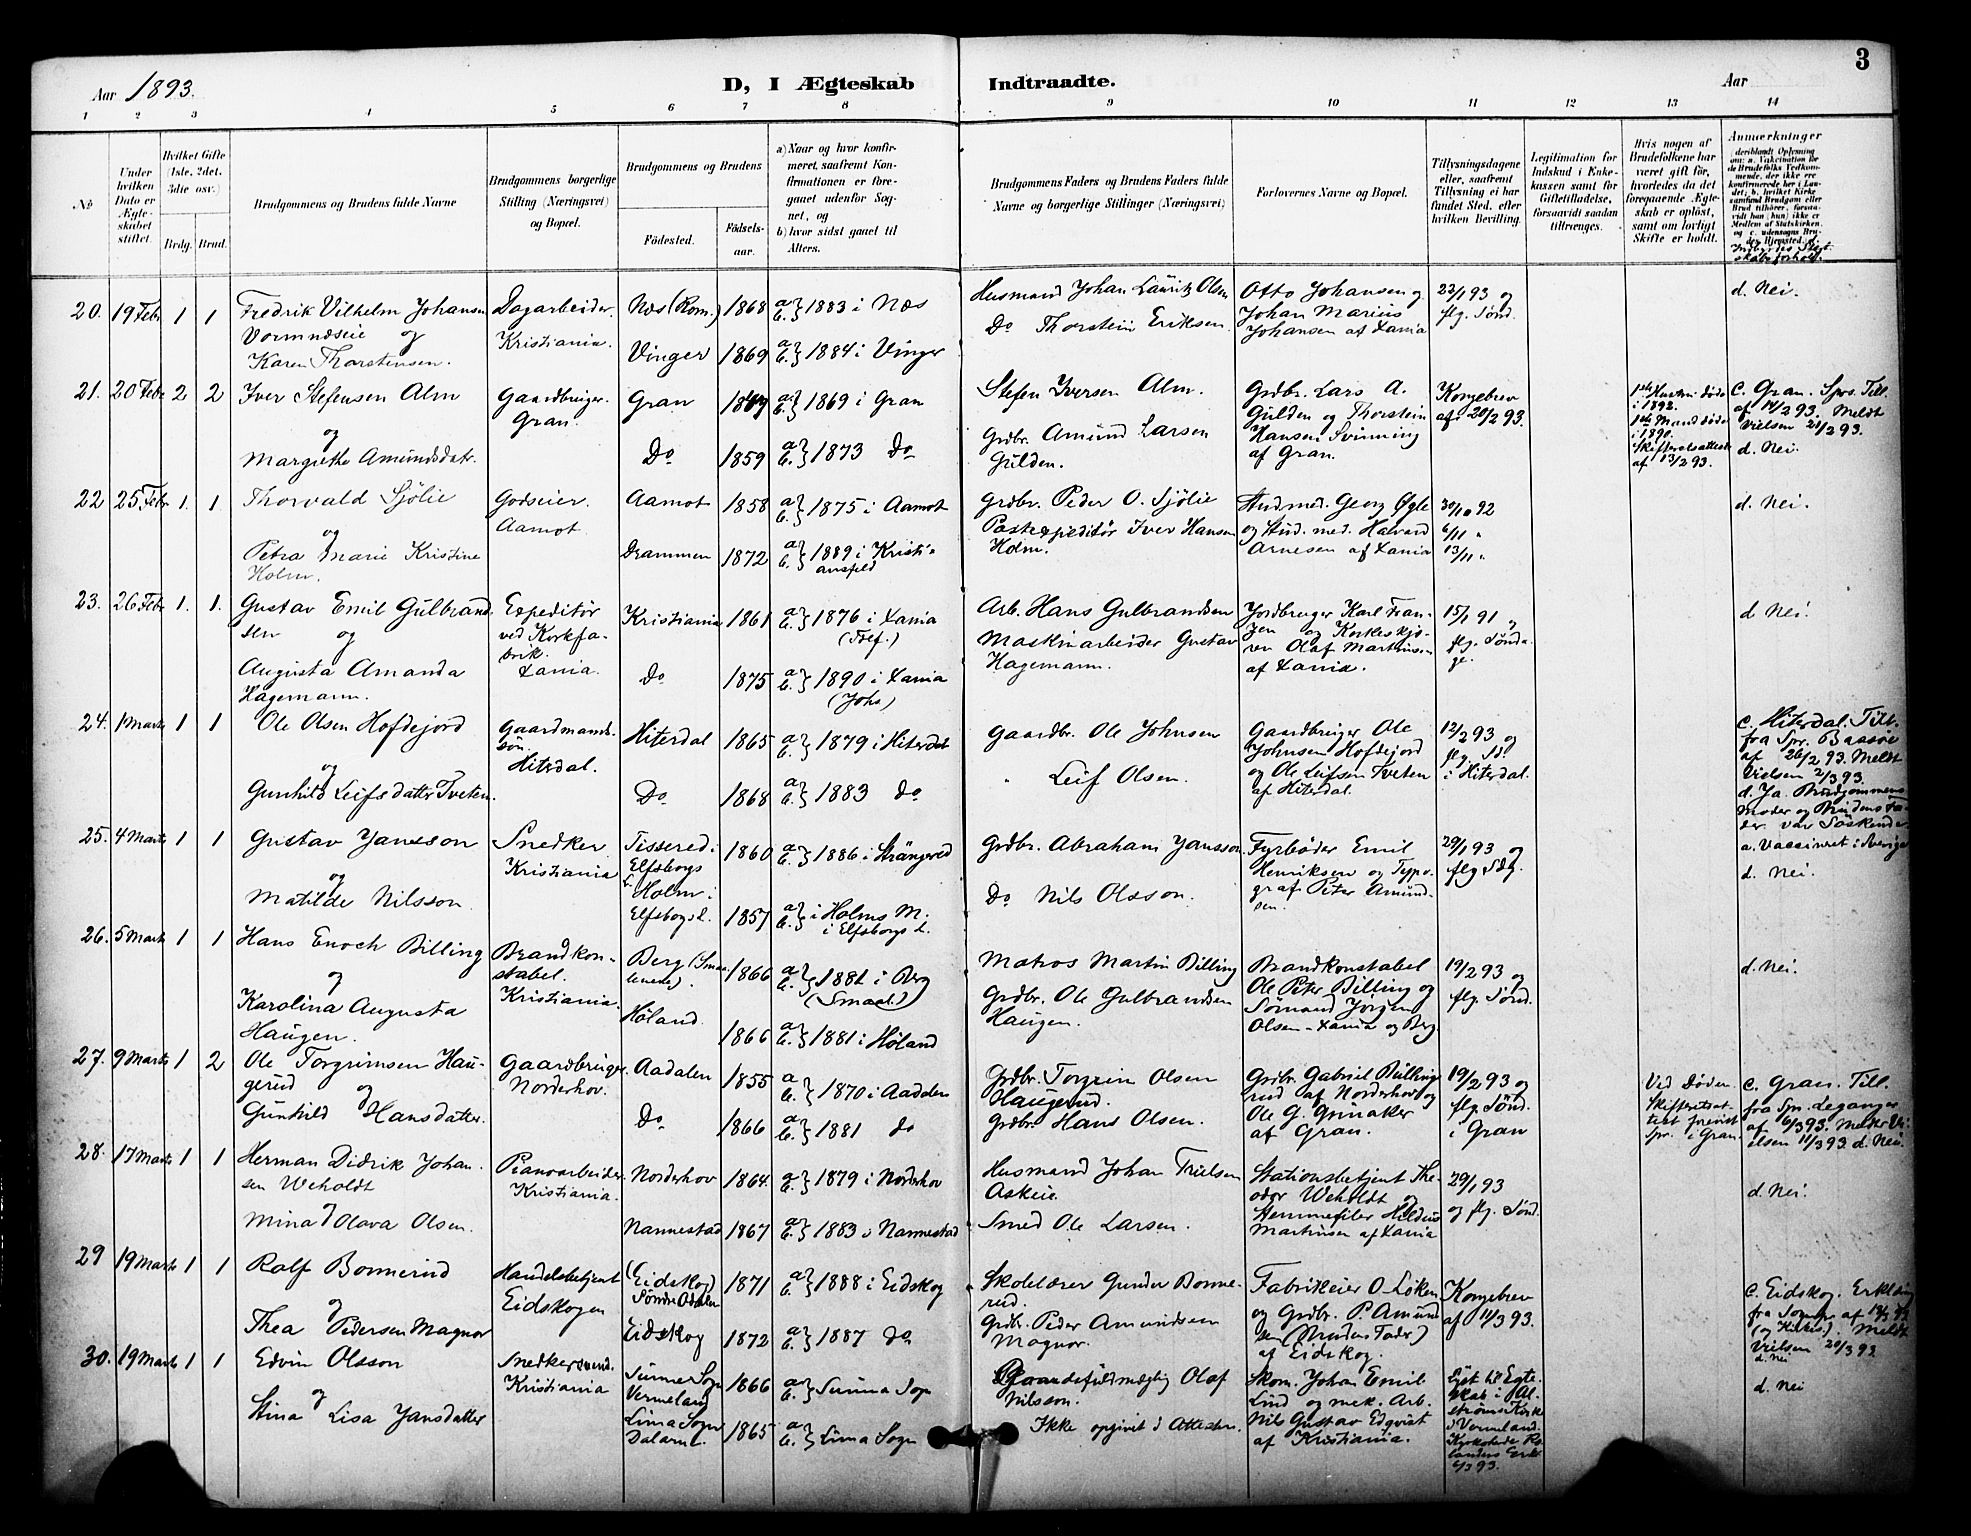 3
Aar 1893.
D, I Ægteskab Indtraadte.
Aar
1 2 3 4 5 6 7 8 9 10 11 12 13 14
No
Under hvilken Dato er Ægteskabet stiftet.
Hvilket Gifte (1ste, 2det, 3die osv.)
Brdg. Brud.
Brudgommens og Brudens fulde Navne
Brudgommens borgerlige Stilling (Næringsvei) og Bopæl.
Brudgommens og Brudens
Fødested.
Fødselsaar.
a) Naar og hvor konfirmeret, saafremt Konfirmationen er foregaaet udenfor Sognet, og
b) hvor sidst gaaet til Alters.
Brudgommens Faders og Brudens Faders fulde Navne og borgerlige Stillinger (Næringsvei)
Forlovernes Navne og Bopæl.
Tillysningsdagene eller, saafremt Tillysning ei har fundet Sted, efter hvilken Bevilling.
Legitimation for Indskud i Enkekassen samt for Giftetilladelse, forsaavidt saadan tiltrænges.
Hvis nogen af Brudefolkene har været gift før, hvorledes da det foregaaende Ægteskab er opløst, samt om lovligt Skifte er holdt.
Anmerkninger
20. 19 Febr 1 1 Fredrik Vilhelm Johansen Dagarbeider. Næs (Rom.) 1868 a b } 1883 i Næs Husmand Johan Lauritz Olsen Otto Johansen og 22/1 93 og d. Nei.
Vormnæseie og Kristiania. Do Thorstein Eriksen. Johan Marius flg. Sønd.
Karen Thorstensen. Vinger 1869 a b } 1884 i Vinger Johansen af Xania
21. 20 Febr 2 2 Iver Stefensen Alm Gaardbruger. Gran 1849 a b } 1869 i Gran Stefen Iversen Alm. Grdbr. Lars A. Kongebrev 1ste Hustru døde c. Gran. Spr. Till.
og Gran. Gulden og Thorstein af 20/2 93. i 1892. af 14/2 93. Meldt
Margrethe Amundsdatr. Do 1859 a b } 1873 Do Grdbr. Amund Larsen Hansen Svinning 1ste Mand døde i 1890. Vielsen 21/2 93.
Gulden. af Gran. Skifteretsattest af 13/2 93. d. Nei.
22 25 Febr 1. 1. Thorvald Sjölie Godseier. Aamot 1858 a b } 1875 i Aamot Grdbr. Peder O. Sjölie Stud. med. Georg Øgle 30/10 92 d. Nei.
og Aamot. Postexpeditör Iver Hansen og Stud. med. Halvard 6/11 "
Petra Marie Kristine Drammen 1872 a b } 1889 i Kristiansfeld Holm. Arnesen af Xania 13/11 "
Holm.
23. 26 Febr 1. 1. Gustav Emil Gulbrand- Expeditör Kristiania 1861 a b } 1876 i Xania Arb. Hans Gulbrandsen Jordbruger Karl Fran- 15/1 91 og d. Nei.
sen og ved Korkfa- (Tref.) Maskinarbeider Gustav zen og Korkeskjæ- flg. Sønda-
brik. Hagemann. rer Olaf Martinsen ge.
Augusta Amanda Xania. Do 1875 a b } 1890 i Xania af Xania.
Hagemann. (Johs)
24. 1 Marts 1 1 Ole Olsen Hofdejord Gaardmands- Hiterdal 1865 a b } 1879 i Hiterdal Gaardbr. Ole Johnsen Gaardbruger Ole 12/2 93 og c. Hiterdal. Till.
og søn. Johnsen Hofdejord flg. Sd. fra Spr. Baasøe
Hiterdal. " Leif Olsen. og Ole Leifsen Tveten i Hiterdal. af 26/2 93. Meldt
Gunhild Leifsdatter Tveten. Do 1868 a b } 1883 do af Hiterdal. Vielsen 2/3 93.
d. Ja. Brudgommens
Moder og Brudens Fa-
der var Söskende.
25. 4 Marts 1 1 Gustav Jansson Snedker Tissered i 1860 a b } 1886 i Strängered Grdbr. Abraham Jansson. Fyrbøder Emil 29/1 93 og a. Vaccineret i Sverige
og Kristiania Elfsborgs L. Henriksen og Typo- flg Sdg. d. Nei.
Matilde Nilsson. Holm i Do Nils Olsson. graf Peter Amund-
Elfsborgs L. 1857 a b } i Holms M. i Elfsborgs L. sen.
26. 5 Marts 1 1 Hans Enoch Billing Brandkon- Berg (Smaa- 1866 a b } 1881 i Berg Matros Martin Billing Brandkonstabel 19/2 93 og d. Nei.
og stabel. lenene). (Smaal.) Ole Peter Billing og flg. Sønd.
Karolina Augusta Kristiania. Grdbr. Ole Gulbrandsen Sømand Jørgen
Haugen. Høland. 1866 a b } 1881 i Høland Haugen. Olsen - Xania og Berg.
27. 9 Marts 1 2 Ole Torgrimsen Hau- Gaardbruger. Aadalen 1855 a b } 1870 i Aadalen Grdbr. Torgrim Olsen Grdbr. Gabriel Bulling- 19/2 93 og Ved Døden. c. Gran. Till.
gerud og Norderhov. Haugerud. rud af Norderhov og flg. Sønd. Skifteretsat- fra Spr. Leganger
Gunhild Hansdatter. Do 1866 a b } 1881 do Grdbr. Hans Olsen. Ole G. Grinaker i Gran test forevist af 6/3 93. Meldt Vi-
af Gran. Spr. i Gran. elsen 11/3 93. d. Nei.
28. 17 Marts 1 1 Herman Didrik Johan- Pianoarbeider Norderhov 1864. a b } 1879 i Norderhov Husmand Johan Truelsen Stationsbetjent The- 29/1 93 d. Nei.
sen Weholdt Kristiania. Askeie. odor Weholdt og og flg. Sønd.
Mina Olava Olsen. Nannestad 1867 a b } 1883 i Nannestad Smed Ole Larsen.
Martinsen af Xania
29 19 Marts 1 1 Rolf Bonnerud Handelsbetjent (Eidskog) 1871 a b } 1888 i Eidskog Skolelærer Gunder Bonne- Fabrikeier O. Løken Kongebrev c. Eidskog. Erklæring
og Eidskogen Søndre Odalen rud. og Grdbr. P. Amund- af 11/3 93. fra Sognepr.
Thea Pedersen Magnor Eidskog 1872 a b } 1887 do Grdb. Peder Amundsen sen (Brudens Fader) Meldt
Magnor. af Eidskog. Vielsen 20/3 93.
d. Nei
30. 19 Marts 1 1 Edvin Olsson Snedkersvend. Sunne Sogn 1866 a b } Sunna Sogn Olaf Skom. Johan Emil Lyst til Egte- d. Nei
og Kristiania Vermeland Nilsson. Lind og mek. Arb. skab i
Stina Lisa Jansdatter Lima Sogn 1865 a b } Lima Sogn Ikke opgivet i Attesten. Nils Gustav Edqvist
Dalarne. af Kristiania. i Vermeland.
6/3 93.